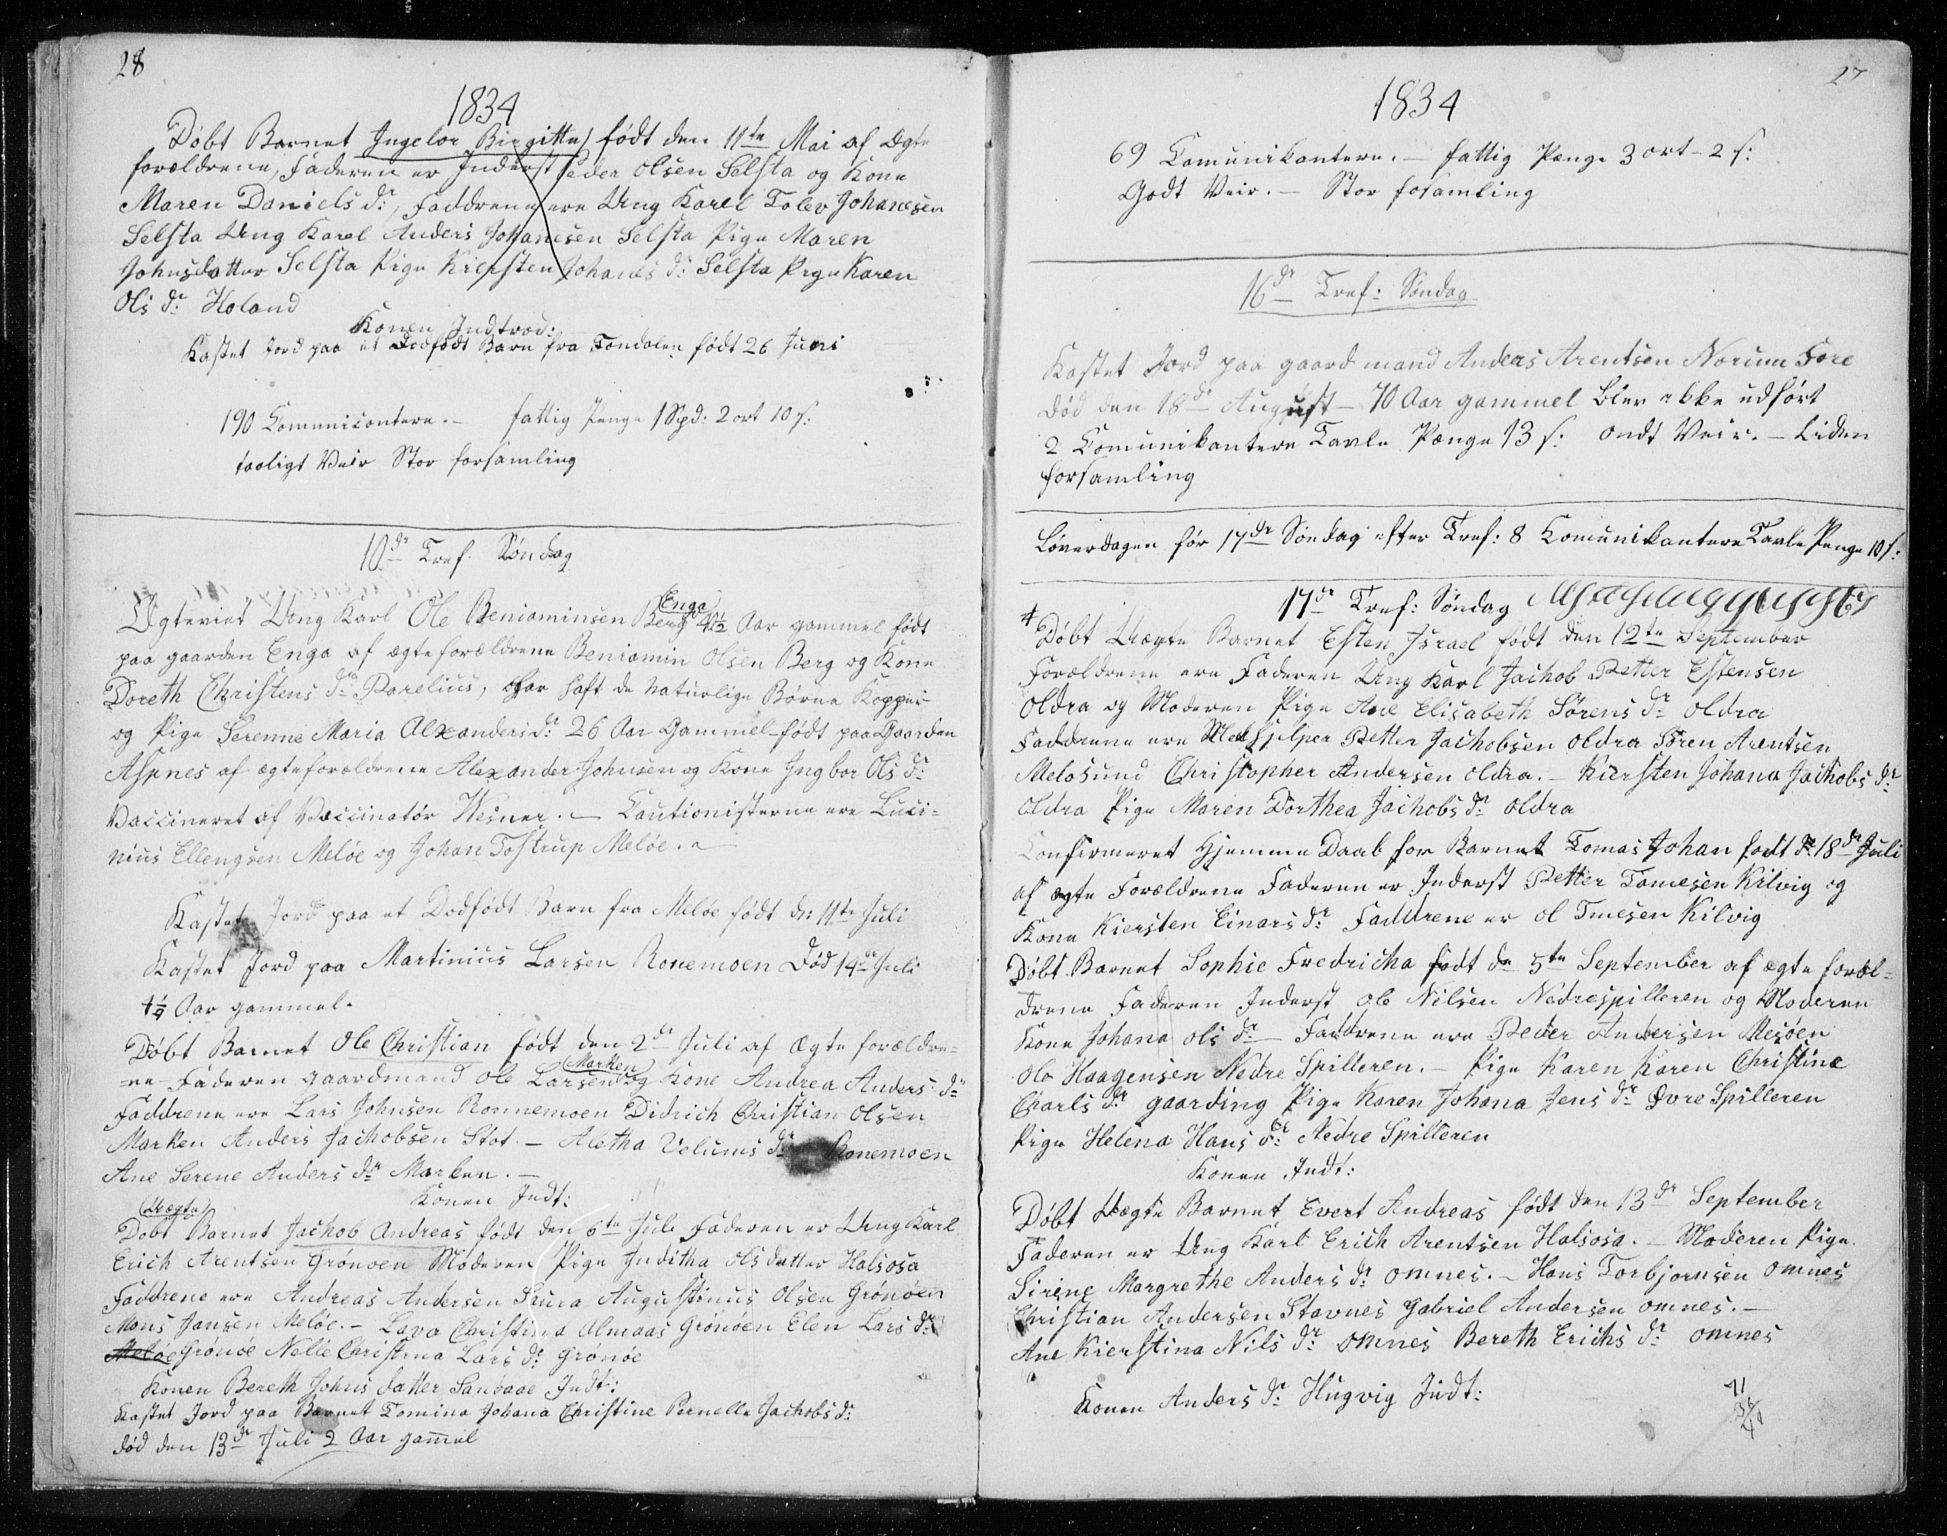 28
1834
Døbt Barnet Ingelor Birgitte født den 11te Mai af Ægte
forældrene, Faderen er Inderst Peder Olsen Selsta og Kone
Maren Daniels dr:, Faddrene ere Ung Karel Tolev Johanesen
Selsta Ung Karel Anders Johanesen Selsta Pige Maren
Johnsdatter Selsta Pige Kiersten Johanes dr: Selsta Pige Karen
Ols dr: Holand
Konen Indtrod:
Kastet Jord paa et Dødfødt Barn fra Tondalen født 26 Juni
190 Communicantere. – fattig Penge 1 Spd: 2 ort 10 s:
taaligt Veir Stor forsamling
10de Tref: Søndag
Enga
Ægteviet Ung Karl Ole Beniaminsen Berg Aar gammel født
paa gaarden Enga af ægteforældrene Beniamin Olsen Berg og Kone
Doreth Christens dr Parelius, har haft de naturlige Børne Kopper
og Pige Serenne Maria Alexanders dr: 26 Aar Gammel født paa Gaarden
Aspnes af ægteforældrene Alexander Johnsen og Kone Ingbor Ols dr:
Vaccineret af Vaccinatör Wesner. – Cautionisterne ere Luci=
nius Ellengsen Meløe og Johan Tostrup Meløe. –
Kastet Jord paa et Dødfødt Barn fra Meløe født d: 11te Juli
Kastet Jord paa Martinius Larsen Ronemoen Død 14de Juli
Aar gammel.
Døbt Barnet Ole Christian født den 2de Juli af Ægte forældre=
Marken
=ne Faderen gaardmand Ole Larsen og Kone Andrea Anders dr
Faddrene ere Lars Johnsen Ronnemoen Didrich Christian Olsen
Marken Anders Jachobsen Stot. – Aletha Velums dr Ronemoen
Ane Serene Anders dr Marken. –
Konen Indt:
Uægte
Døbt Barnet Jachob Andreas født den 6te Juli Faderen er Ung Karl
Erich Arentsen Grönoen Moderen Pige Inditha Olsdatter Halsosa
Faddrene ere Andreas Andersen Augustinus Olsen Grönöen
Mons Jansen Meløe. – Lava Christina Almaas Grönöen Elen Lars dr
Meløe Grönöe Nelle Christina Lars dr Grönöe
Konen Bereth Johns datter Indt:
Kastet Jord paa Barnet Tomina Johana Christine Pernelle Jachobs dr:
død den 13de Juli 2 Aar gammel
27
1834
69 Comunikantere. – fattig Penge 3 ort – 2 s:
Godt Veir. – Stor fosamling
16de Tref: Søndag
Kastet Jord paa gaardmand Anders Arentsen Norum Fore
død den 18de August – 70 Aar gammel blev ikke udført
2 Comunikantere Tavle Penge 13 s: ondt Veir. – Liden
forsamling
Løverdagen før 17de Søndag efter Tref: 8 Comunikantere Tavle Penge 10 s:
17de Tref: Søndag
Døbt Uægte Barnet Esten Israel født den 12te September
Forældrene ere Faderen Ung Karl Jachob Petter Estensen
Oldra og Moderen Pige Ane Elisabeth Sørens dr Oldra
Faddrene ere Medhjelper Petter Jachobsen Oldra Søren Arentsen
Melosund Christopher Andersen Oldra. – Kiersten Johana Jachobs dr
Oldra Pige Maren Dorthea Jachobs dr Oldra
Confirmeret Hjemme Daab for Barnet Tomas Johan født d: 18de Juli
af ægte Forældrene Faderen er Inderst Petter Tomesen Kilvig og
Kone Kiersten Einars dr Faddrene er ol Tmesen Kilvig
Døbt Barnet Sophie Fredricha født de 5te September af ægte foræl=
drene Faderen Inderst ole Nilsen Nedrespilleren og Moderen
Kone Johana ols dr – Faddrene ere Peder Andersen Mesøen
Ole Haagensen Nedre Spilleren. – Pige Karen Karen Christine
Charls dr gaarding Pige Karen Johana Jens dr Øvre Spilleren
Pige Helena Hans dr: Nedre Spilleren
Konen Indt:
Døbt Uægte Barnet Evert Andreas født den 13de September
Faderen er Ung Karl Erich Arentsen Halsosa. – Moderen Pige
Sirene Margrethe Anders dr Omnes. – Hans Torbjornsen Omnes
Christian Andersen Stavnes Gabriel Andersen Omnes. –
Ane Kierstina Nils dr Omnes Bereth Erichs dr Omnes
Konen Anders dr Hugvig Indt:
71